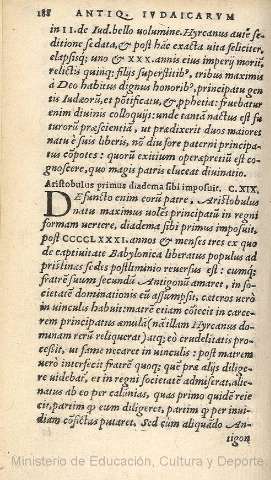 188 ANTIQ. IVDAICARVM
in II. de Iud. bello volumine. Hyrcanus autē se-
ditione sedata, & post hāc exacta vita feliciter,
elapsisq; vno & XXX. annis eius imperij moriū,
relictis quinq; filijs superstitibꝰ, tribus maximis
à Deo habitus dignus honoribꝰ, principatu gen
tis Iudæorū, et pōtificatu, & ꝓphetia: fruebatur
enim diuinis colloquijs: vnde tantā nactus est fu
turorū præscientiā, ut prædixerit duos maiores
natu è suis liberis, nō diu fore paterni principa-
tus cōpotes: quorū exitium operæpretiū est co-
gnoscere, quo magis patris eluceat diuinatio.
Aristobulus primus diadema sibi imposuit. C. XIX.
DEfuncto enim eorū patre, Aristobulus
natu maximus volēs principatū in regni
formam vertere, diadema sibi primus imposuit,
post CCCCLXXXI. annos & menses tres ex quo
de captiuitate Babylonica liberatus populus ad
pristinas sedes postliminio reuersus est: cumq;
fratrē suum secundū Antigonū amaret, in so-
cietatē dominationis eū assumpsit, cæteros verò
in vinculis habuit: matrē etiam cōiecit in carce-
rem principatus æmulā (nā illam Hyrcanus do-
munam rerū reliquerat) atq; eò crudelitatis pro-
cessit, ut fame necaret in vinculis: post matrem
verò interfecit fratrē quoq; quē præ alijs dilige-
re uidebat, et in regni societatē admiserat, alie-
natus ab eo per calūnias, quas primo quidē reie
cit, partim ꝙ eum diligeret, partim ꝙ per inui-
diam cōfictus putaret. Sed cum aliquādo An-
tigon
Ministerio de Educación, Cultura y Deporte